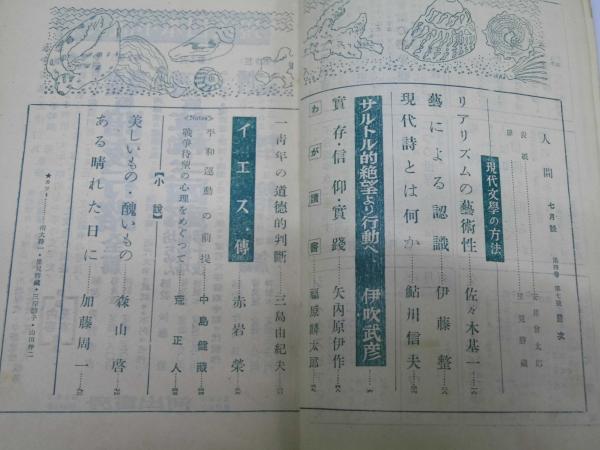 人間 七月號 第四卷 第七號 目次
表紙 安井曾太郎
扉 里見勝藏
現代文學の方法
リアリズムの藝術性 佐々木基一
藝による認識 伊藤整
現代詩とは何か 鮎川信夫
サルトル的絶望より行動へ 伊吹武彦
實存・信仰・實踐 矢内原伊作
わが讀書 福原麟太郎
一靑年の道德的判斷 三島由紀夫
イエス傳 赤岩榮
<Notes>
平和運動の前提 中島健藏
戰爭待望の心理をめぐつて 荒正人
【小說】
美しいもの・醜いもの 森山啓
ある晴れた日に 加藤周一